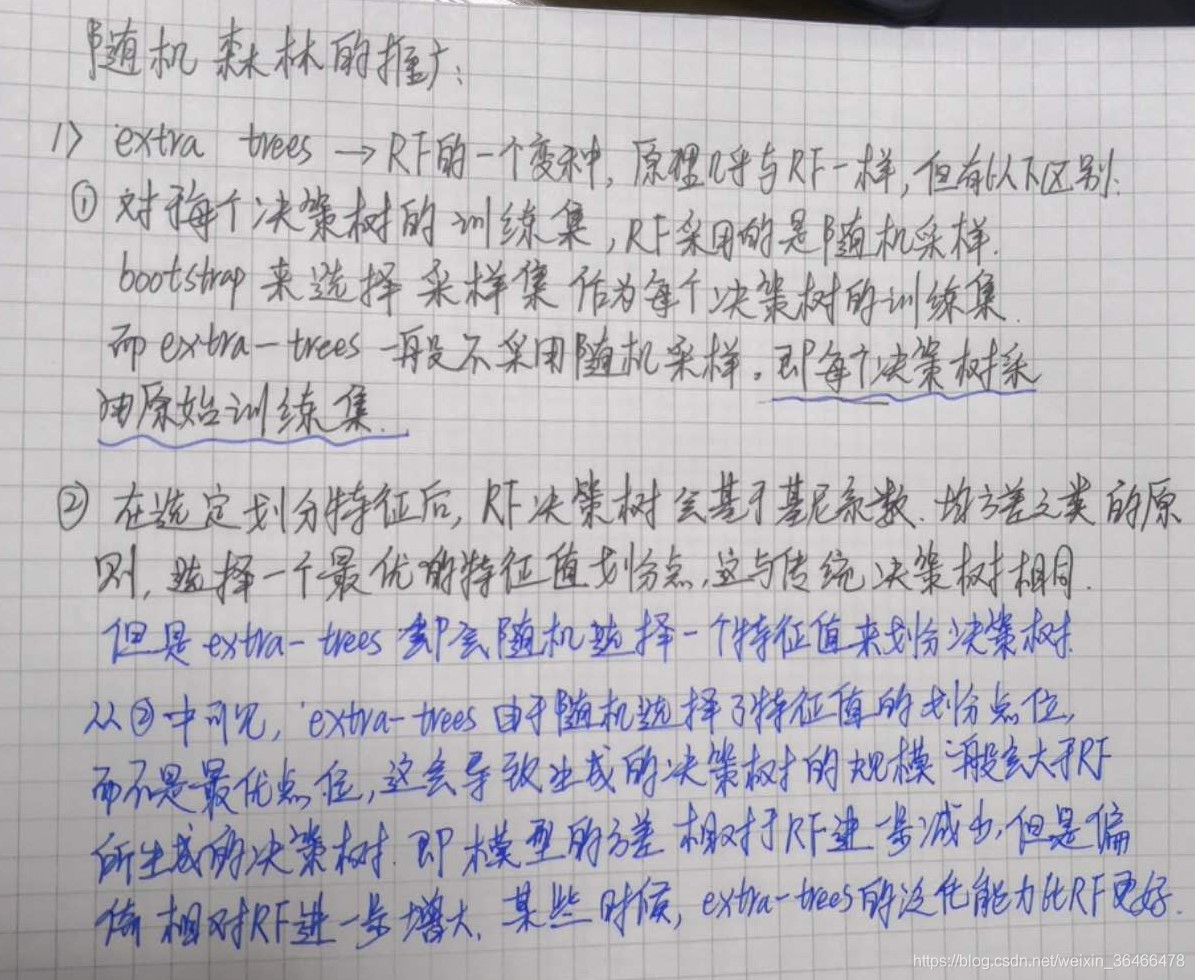 随机森林的推广:
1> extra trees → RF的一个变种, 原理几乎与RF一样, 但有以下区别:
① 对于每个决策树的训练集, RF采用的是随机采样.
bootstrap 来选择采样集作为每个决策树的训练集.
而extra-trees一般不采用随机采样。即每个决策树采
用原始训练集.
② 在选定划分特征后, RF决策树会基于基尼系数. 均方差之类的原
则, 选择一个最优的特征值划分点, 这与传统决策树相同.
但是extra-trees却会随机选择一个特征值来划分决策树.
从②中可见, extra-trees由于随机选择了特征值的划分点位,
而不是最优点位, 这会导致生成的决策树的规模一般会大于RF
所生成的决策树. 即模型的方差相对于RF进一步减少, 但是偏
倚相对RF进一步增大. 某些时候, extra-trees的泛化能力比RF更好.
https://blog.csdn.net/weixin_36466478